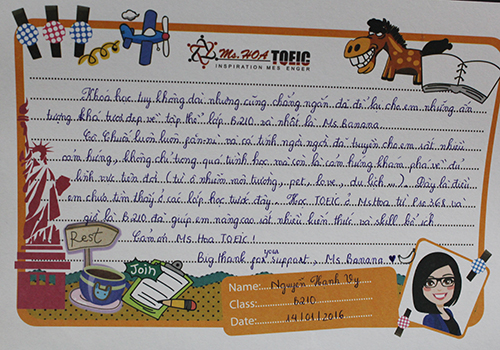 Ms. HOA TOEIC
INSPIRATION MESSENGER
Khoá học tuy không dài nhưng cũng chẳng ngắn đã để lại cho em những ấn
tượng khá tươi đẹp về tập thể lớp B210 và nhất là Ms Banana.
Cô Chuối luôn luôn fun-ni và cá tính ngời ngời đã truyền cho em rất nhiều
cảm hứng, không chỉ trong quá trình học mà còn là cảm hứng khám phá về đủ
lĩnh vực trên đời (từ ô nhiễm môi trường, pet, love, du lịch ...). Đây là điều
em chưa tìm thấy ở các lớp học trước đây. Học TOEIC ở Ms Hoa từ Pre 368 và
giờ là B210 đã giúp em nâng cao rất nhiều kiến thức và skill bổ ích
Cảm ơn Ms. Hoa TOEIC!
Big thank for your support, Ms. Banana ♥
Rest
Join
Name: Nguyễn Thanh Vy
Class: B210
Date: 14/01/2016